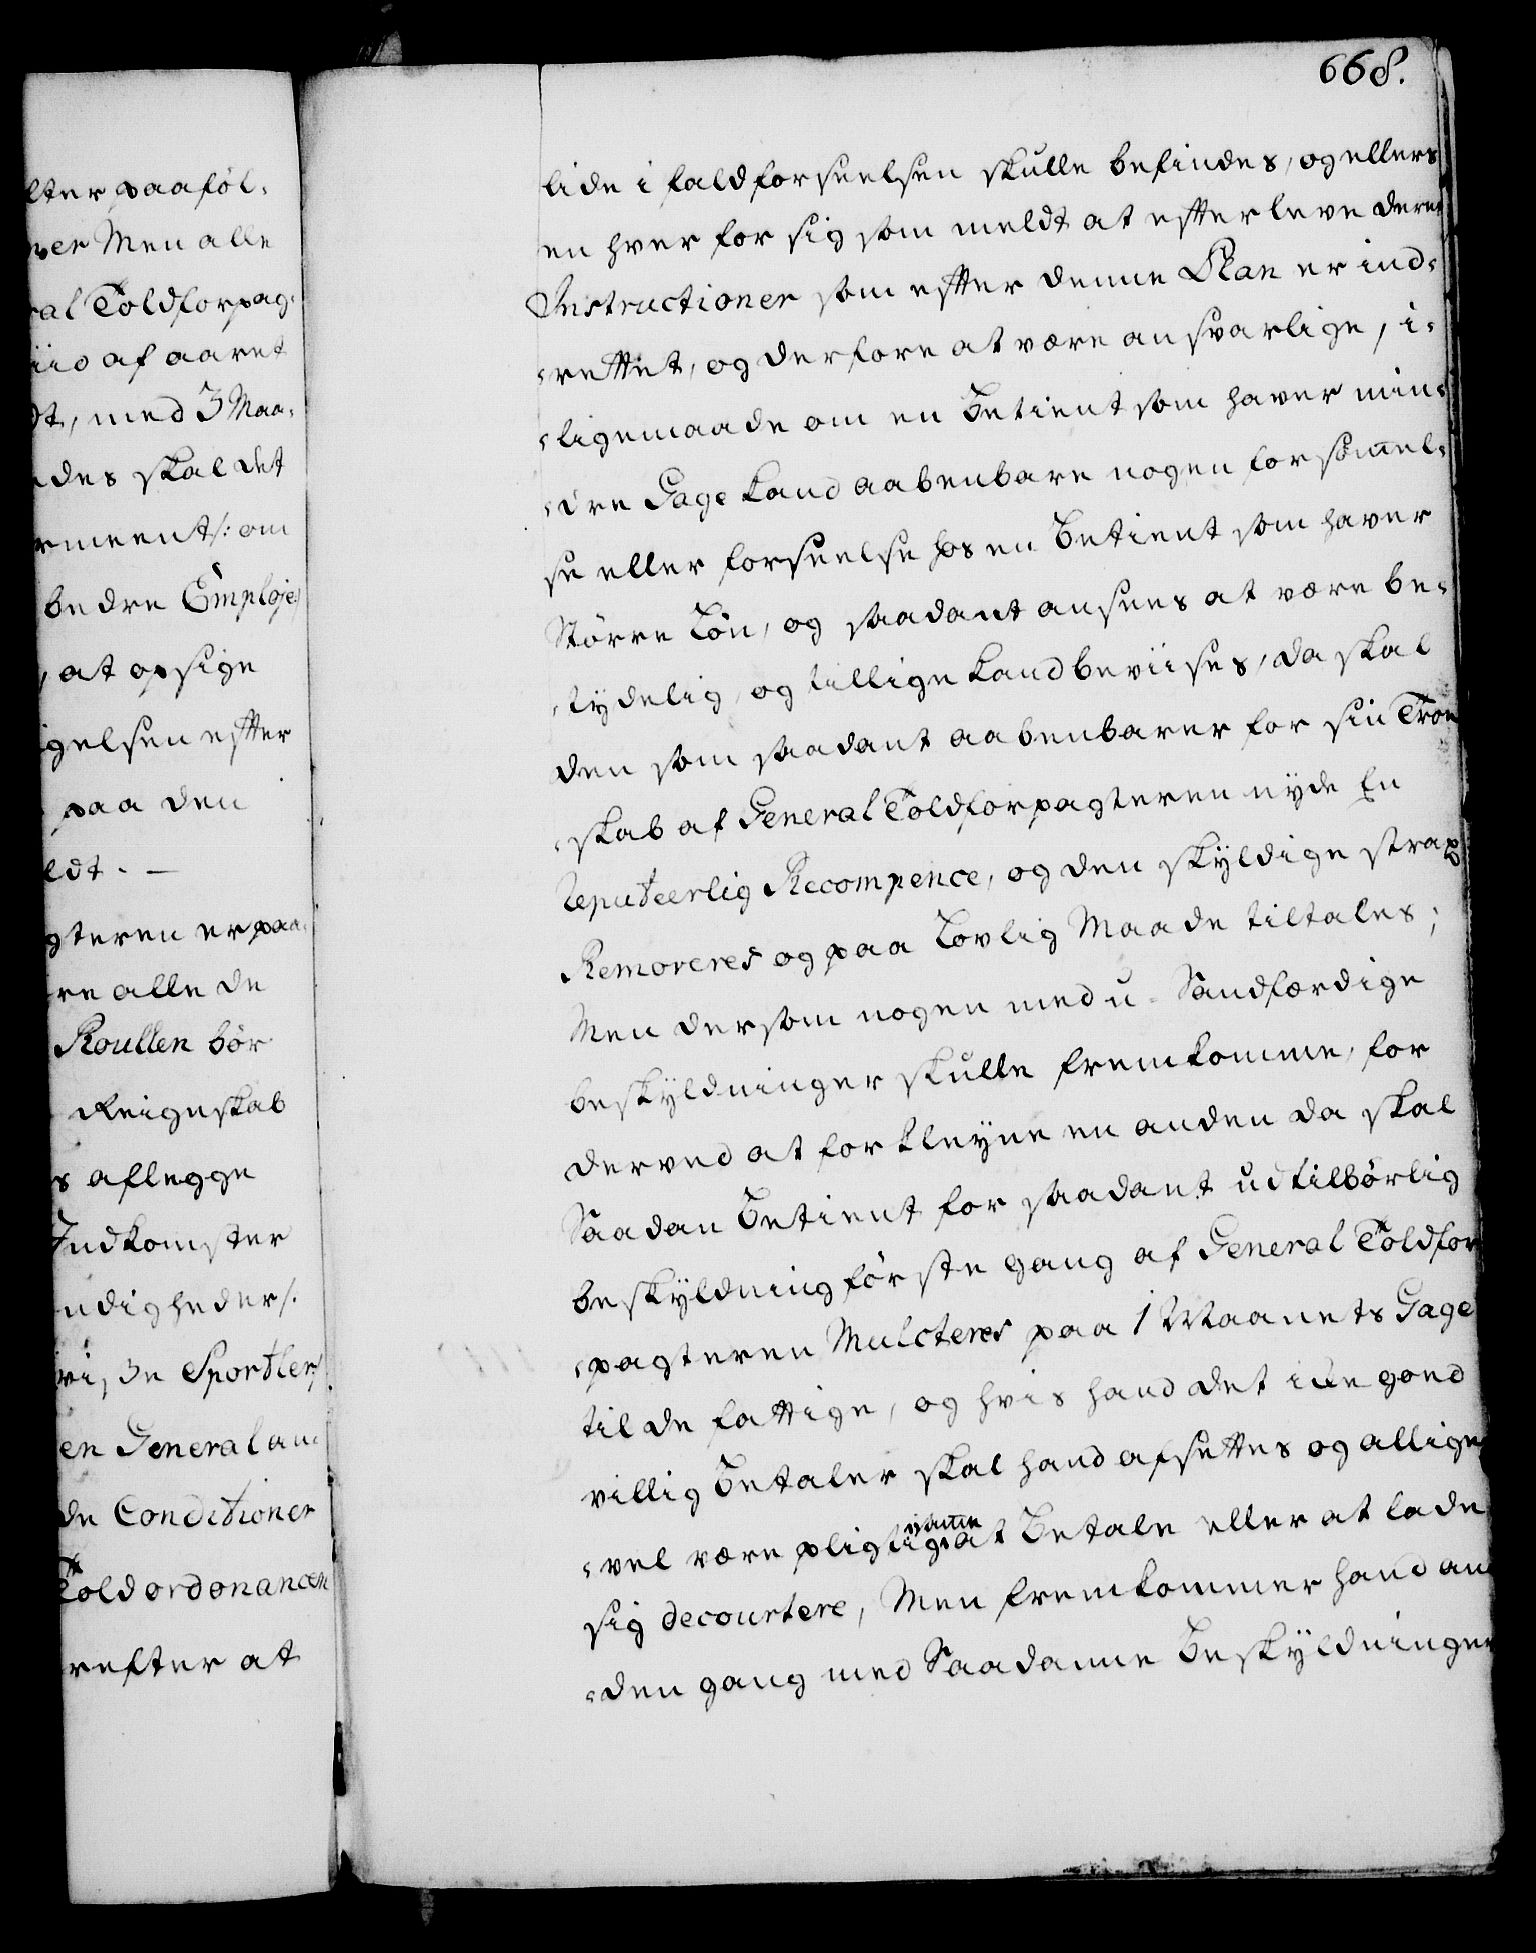 lter paaföl-
ner Men alle
ral Toldforpag-
iid af aaret
dt, med 3 Maa-
des skal det
rmeent/: om
bedre Emploje/
, at opsige
gelsen efter
paa den
ldt. -
gteren er paa-
re alle de
Roullen bör
Reigneskab
s aflegge
Indkomster
ndigheder/:
vi, de Sportler/
en General an-
de Conditioner
Toldordonancen
refter at
668.
lide i fald forseelsen skulle befindes, og ellers
en hver for sig som meldt at efterleve deres
Instructioner som efter denne Plan er ind-
-rettet, og derfore at være ansvarlige, i-
-ligemaade om en Betient som haver min-
-dre Gage kand aabenbare nogen forsömel-
se eller forseelse hos en Betient som haver
Större Lön, og saadant ansees at være be-
-tydelig, og tillige kand beviises, da skal
den som saadant aabenbarer for sin Troe
-skab af General Toldforpagteren nyde En
reputeerlig Recompence, og den skyldige strax
Removeres og paa Lovlig Maade tiltales;
Men dersom nogen med u-Sandfærdige
beskyldninger skulle fremkomme, for
derved at forkleyne en anden da skal
Saadan Betient for saadant udtilbörlig
beskyldning förste gang af General Toldfor
-pagteren Mulcteres paa 1 Maanets Gage
til de fattige, og hvis hand det icke goed
villig Betaler skal hand afsettes og allige
samme
-vel være pligtig at Betale eller at lade
sig decourtere, Men fremkommer hand an
-den gang med Saadanne Beskyldninger